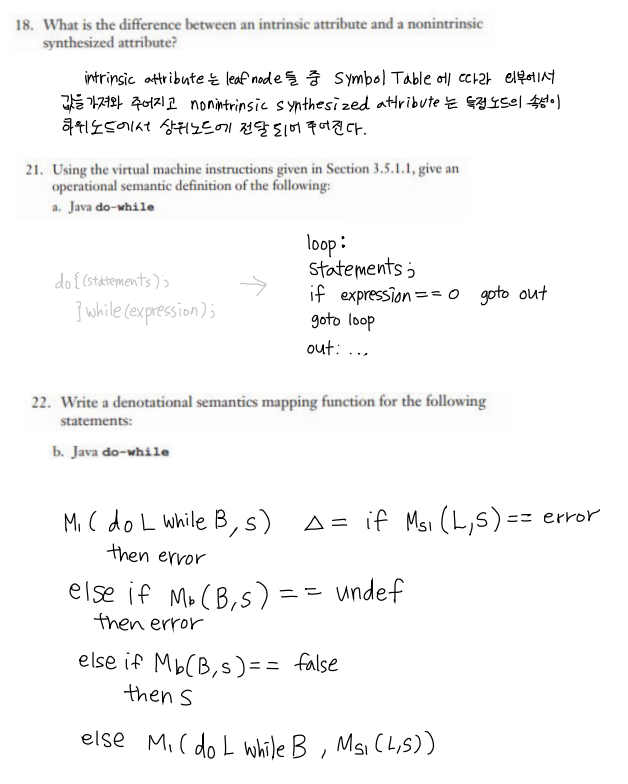 18. What is the difference between an intrinsic attribute and a nonintrinsic
synthesized attribute?
intrinsic attribute는 leaf node들 중 Symbol Table에 따라 외부에서
값을 가져와 주어지고 nonintrinsic synthesized attribute는 특정노드의 속성이
하위노드에서 상위노드에 전달되어 주어진다.
21. Using the virtual machine instructions given in Section 3.5.1.1, give an
operational semantic definition of the following:
a. Java do-while
do{(statements);
}while(expression);
→
loop:
statements;
if expression == 0 goto out
goto loop
out: ...
22. Write a denotational semantics mapping function for the following
statements:
b. Java do-while
M₁(do L while B, s) △= if Ms₁(L,S) == error
then error
else if Mb(B,s) == undef
then error
else if Mb(B,s) == false
then s
else M₁(do L while B, Ms₁(L,s))